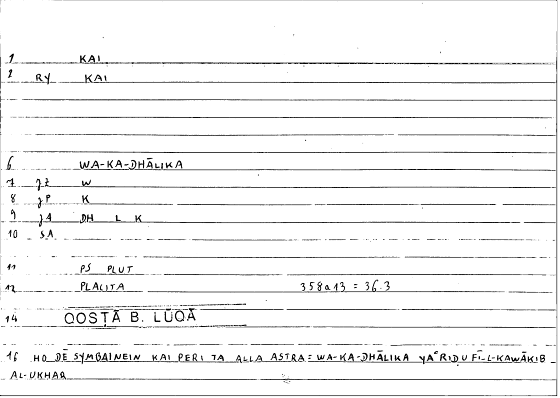 1 KAI
2 RY KAI
6 WA-KA-DHĀLIKA
7 JZ W
8 JP K
9 J1 DH L K
10 SA
11 PS PLUT
12 PLACITA 358a13 = 36.3
14 QOSṬĀ B. LŪQĀ
16 HO DĒ SYMBAINEIN KAI PERI TA ALLA ASTRA = WA-KA-DHĀLIKA YAʿRIḌU FĪ-L-KAWĀKIB
AL-UKHAR